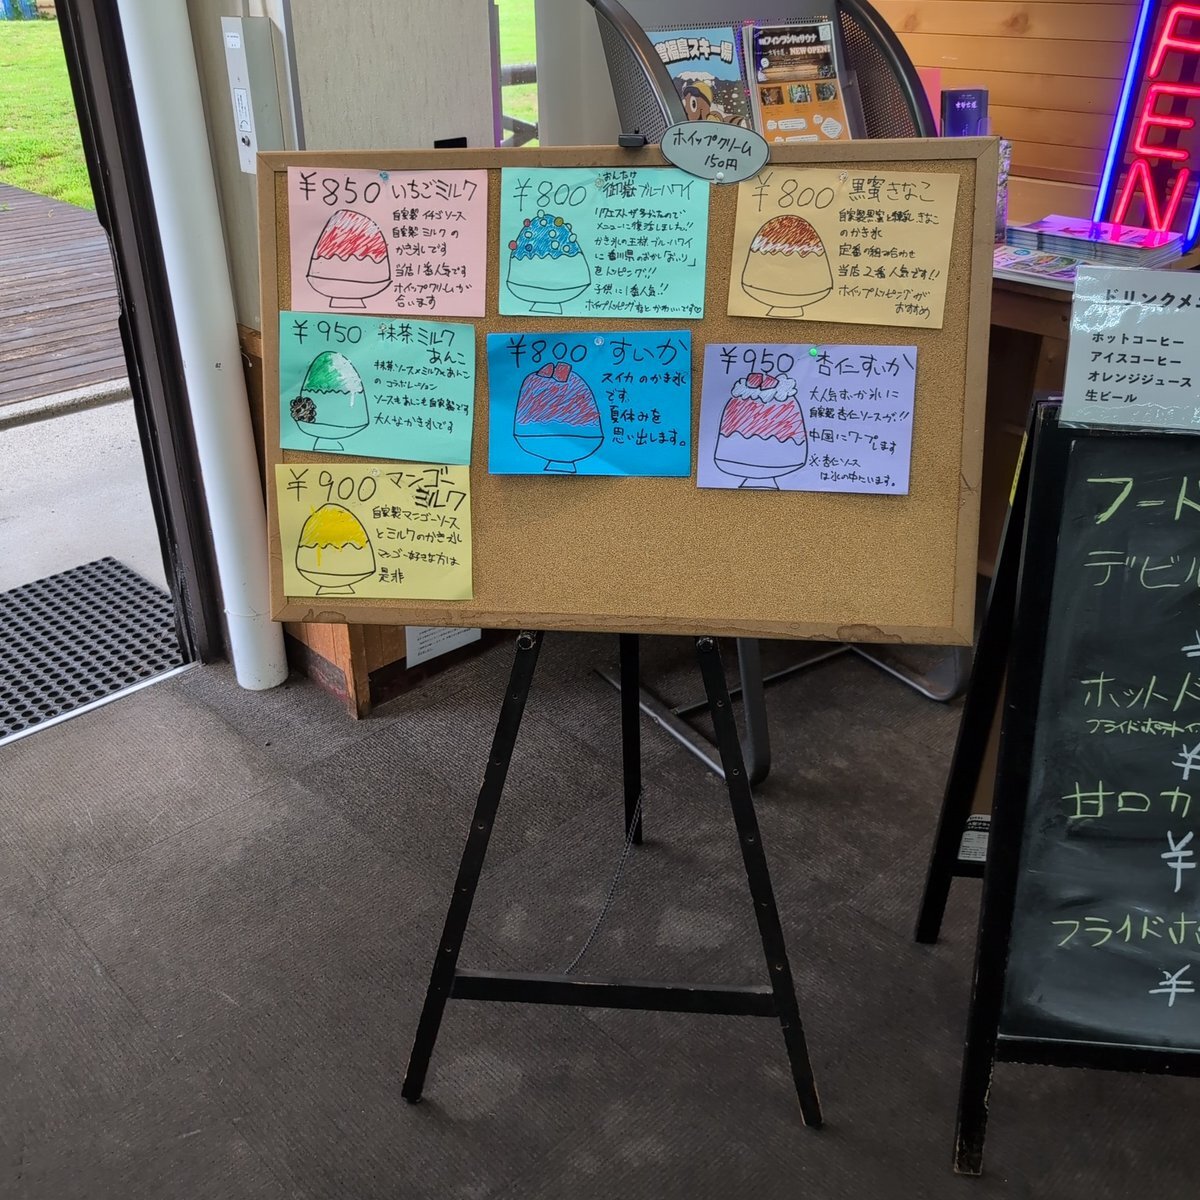 ホイップクリーム
150円
¥850 いちごミルク
自家製 イチゴソース
自家製 ミルク の
かき氷です
当店1番人気です
ホイップクリームが
合います
おんたけ
¥800 御嶽ブルーハワイ
リクエストが多かったので
メニューに復活しました!!
かき氷の王様ブルーハワイ
に香川県のおかし「おいり」
をトッピング!!
子供に1番人気!!
¥800 黒蜜きなこ
のかき氷
定番の組み合わせ
当店2番人気です!!
ホイップトッピングが
おすすめ
¥950 抹茶ミルク
あんこ
抹茶ソース×ミルク×あんこ
のコラボレーション
ソースもあんこも自家製です
大人なかき氷です
¥800 すいか
スイカのかき氷
です、
夏休みを
思い出します。
¥950 杏仁すいか
大人気すいか氷に
自家製杏仁ソースが!!
中国にワープします
※杏仁ソース
は氷の中にいます。
¥900 マンゴー
ミルク
自家製マンゴーソース
とミルクのかき氷
マンゴー好きな方は
是非
NEW OPEN!
ドリンクメ
ホットコーヒー
アイスコーヒー
オレンジジュース
生ビール
フード
デビル
ホットド
¥
甘口カ
¥
フライドポ
¥